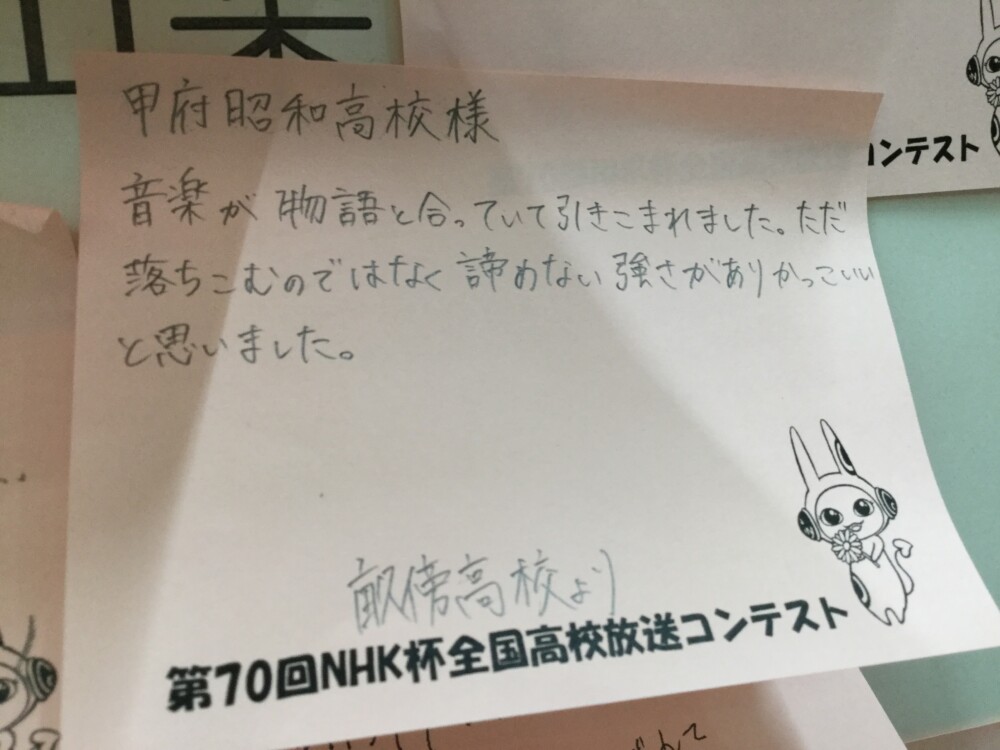 甲府昭和高校様
音楽が物語と合っていて引きこまれました。ただ
落ちこむのではなく諦めない強さがありかっこいい
と思いました。
畝傍高校より
第70回NHK杯全国高校放送コンテスト
コンテスト